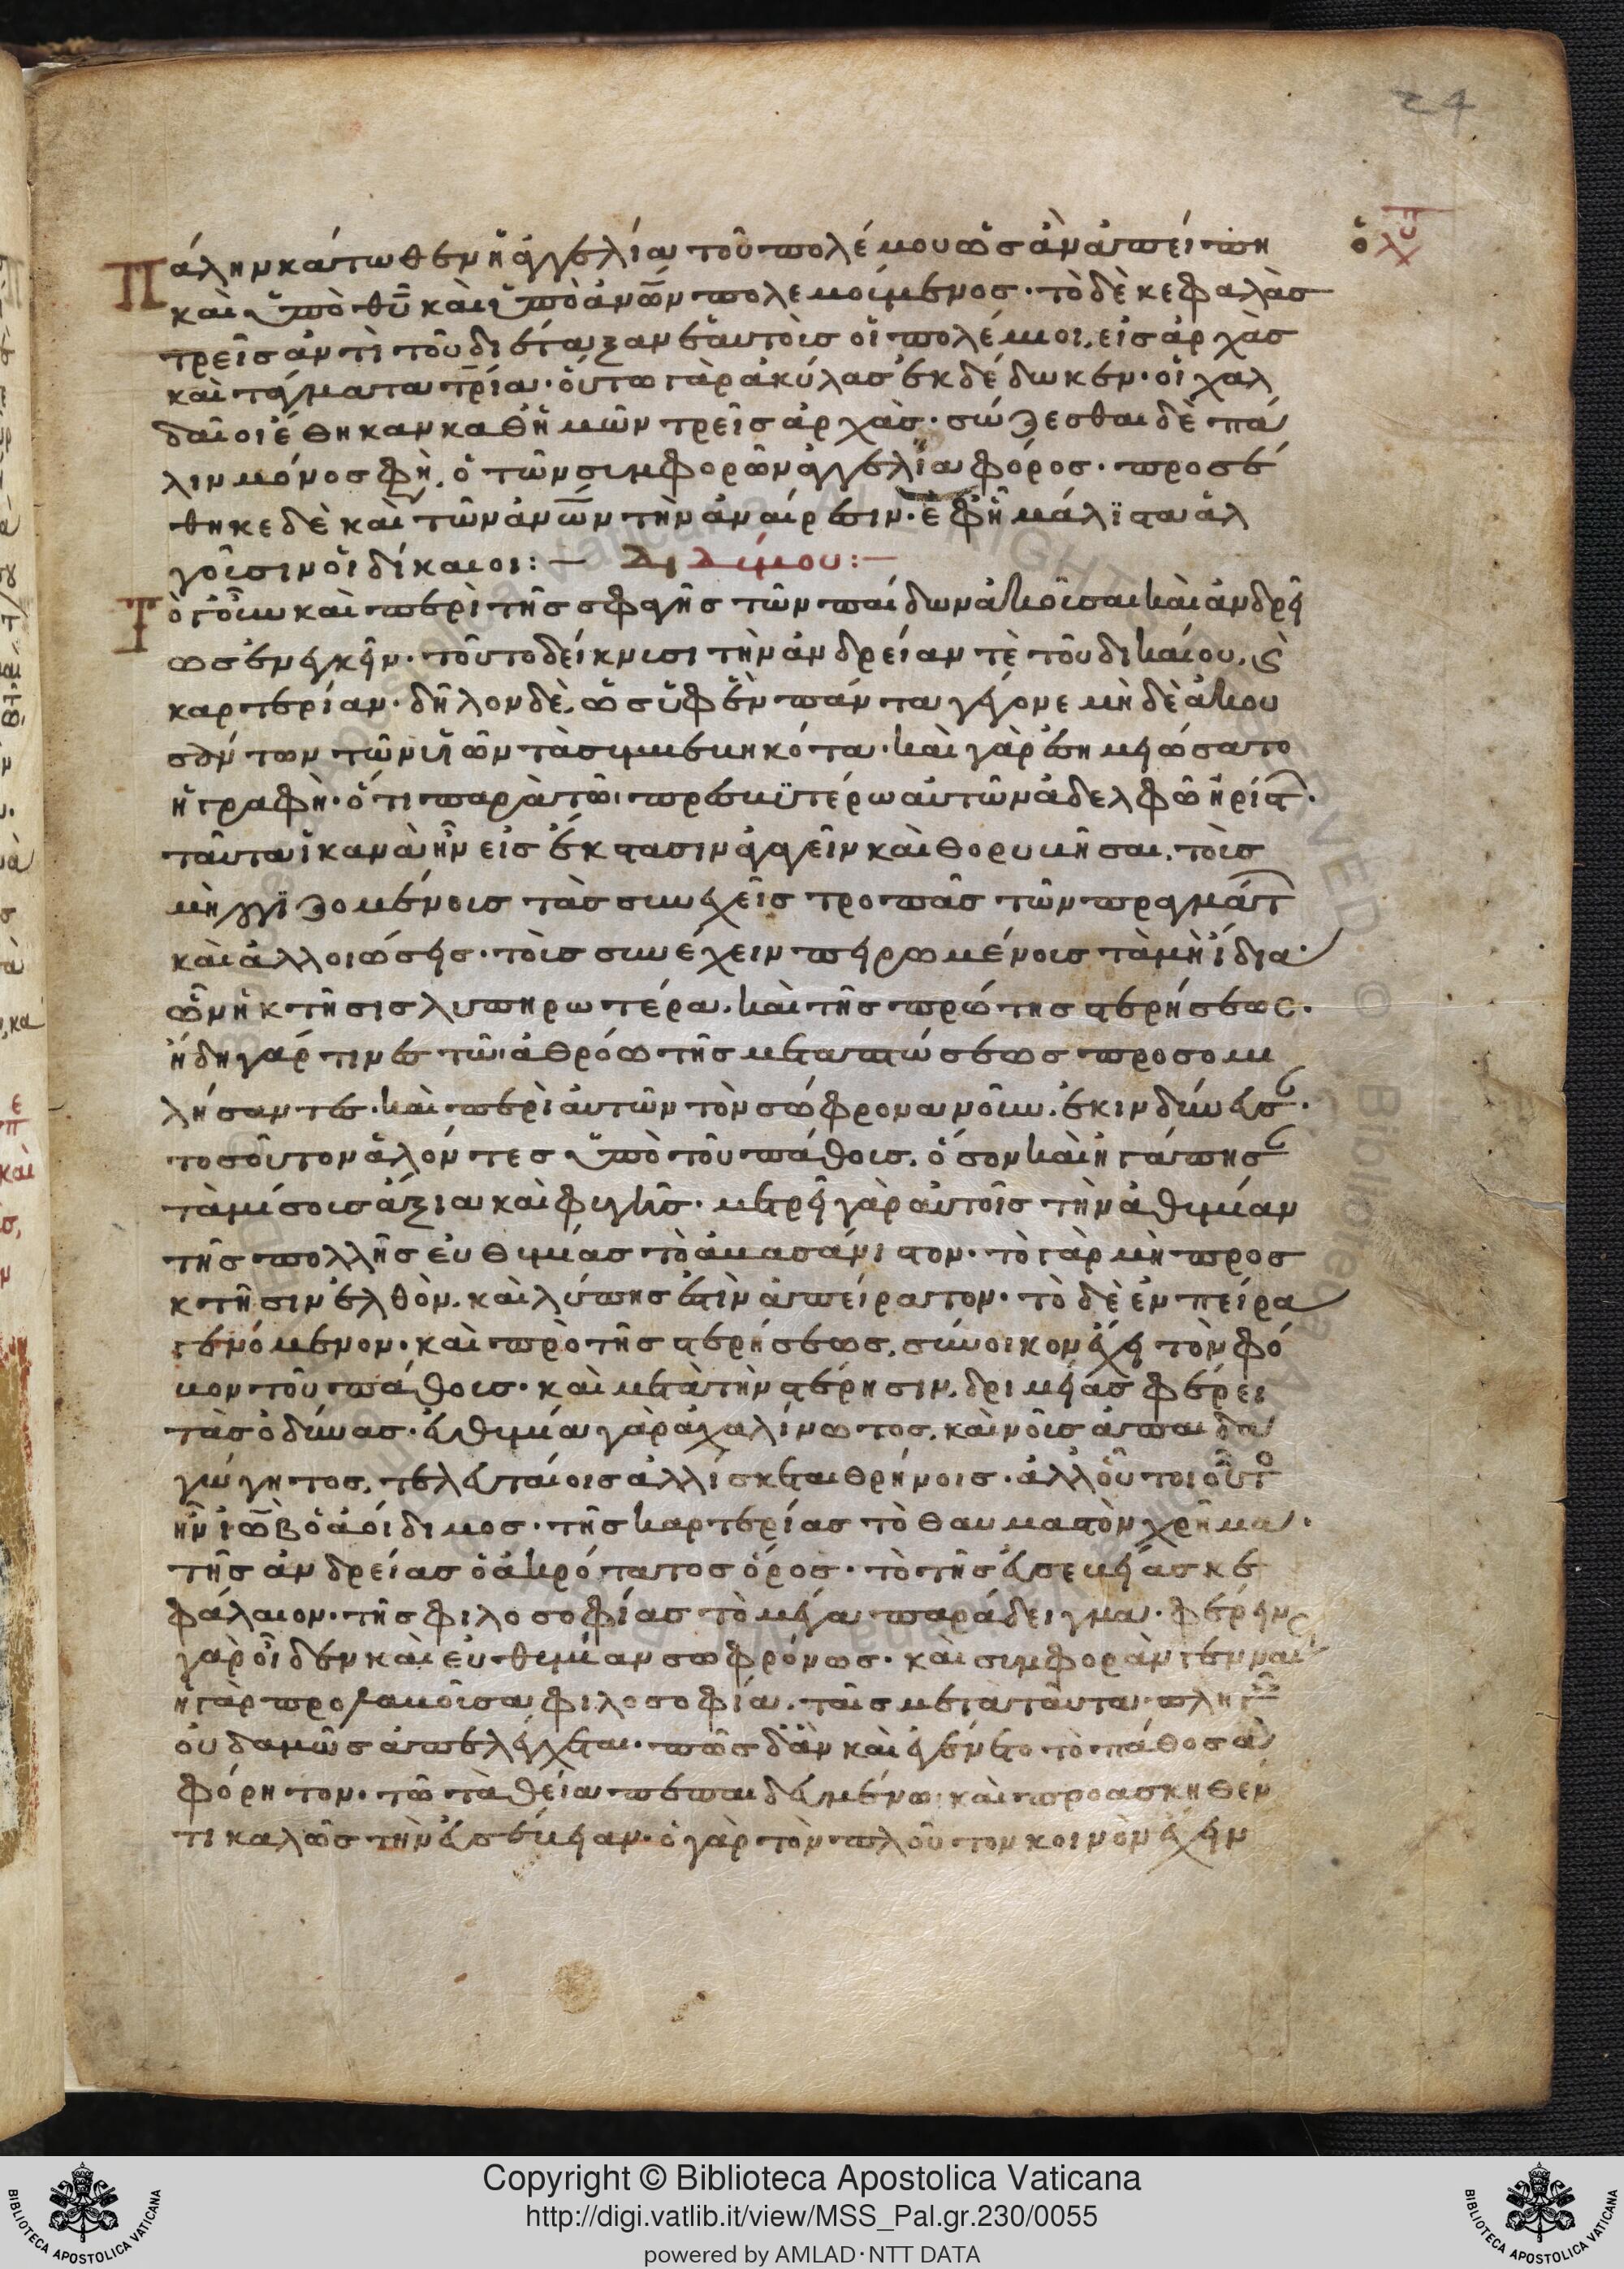 24
Πάλην κάτωθεν ἡ ἀγγελία τοῦ πολέμου ὡς ἂν ἀπείπη
καὶ ὑπὸ θυ καὶ ὑπὸ ἀνων πολεμούμενος· τὸ δὲ κεφαλὰσ
τρεῖσ ἀντὶ τοῦ διέταξαν ἑαυτοὺσ οἱ πολέμιοι, εἰσ ἀρχὰσ
καὶ τάγματα τρία· οὕτω γὰρ ἀκύλασ ἐκδέδωκεν· οἱ χαλ
δαῖοι ἔθηκαν καθ ἡμῶν τρεῖσ ἀρχὰσ· σώζεσθαι δὲ πά
λιν μόνοσ φὴ, ὁ τῶν συμφορῶν ἀγγελίαφόροσ· προσέ
θηκε δὲ καὶ τῶν ἀνων τὴν ἀναίρεσιν· ἐφ ἧ μάλιστα ἀλ
γοῦσιν οἱ δίκαιοι:— Διδύμου:—
Τὸ γοῦν καὶ περὶ τῆσ σφαγῆσ τῶν παίδων ἀκοῦσαι καὶ ἀνδρεί
ωσ ἐνεγκεῖν· τοῦτο δείκνυσι τὴν ἀνδρείαν τὲ τοῦ δικαίου, ϛ
καρτερίαν· δῆλον δὲ, ὡσ ὑφ ἓν πάντα γέγονε μὴ δὲ ἀκου
σάντων τῶν υἱῶν τὰ συμβεβηκότα· καὶ γὰρ ἐσημειώσατο
ἡ γραφὴ· ὅτι παρὰ τῶ πρεσβϋτέρω αὐτῶν ἀδελφῶ ἠρίστ·
ταῦτα ἱκανὰ ἦν εἰσ ἔκστασιν ἀγαγεῖν καὶ θορυβῆσαι, τοὺσ
μὴ λογϊζομένουσ τὰσ συνεχεῖσ τροπὰσ τῶν πραγμάτ
καὶ ἀλλοιώσεισ· τοὺσ συνέχειν πειρωμένουσ τὰ μὴ ἴδια·
ὧν ἡ κτῆσισ λυπηρωτέρα, καὶ τῆσ πρώτησ στερήσεως·
ἤδη γάρ τινεσ τῶ ἀθρόω τῆσ μεταπτώσεωσ προσομι
λήσαντεσ, καὶ περὶ αὐτῶν τὸν σώφρονα νοῦν, ἐκινδύνευσ·
τοσοῦτον ἁλόντεσ ὑπὸ τοῦ πάθουσ, ὅσον καὶ ἠγάπησ
τὰ μίσουσ ἄξια καὶ φυγῆσ· μετρεῖ γὰρ αὐτοῖσ τὴν ἀθυμίαν
τῆσ πολλῆσ εὐθυμίασ τὸ ἀβασάνιστον· τὸ γὰρ μὴ πρὸσ
κτῆσιν ἐλθὸν, καὶ λύπησ ἐστὶν ἀπείραστον· τὸ δὲ ἐν πείρα
γενόμενον· καὶ πρὸ τῆσ στερήσεωσ, σύνοικον ἔχει τὸν φό
βον τοῦ πάθουσ· καὶ μετὰ τὴν στέρησιν, δριμείασ φέρει
τὰσ ὀδύνασ· εὐθυμία γὰρ ἀχαλίνωτοσ, καὶ νοῦσ ἀπαιδα
γώγητοσ, τελευταίουσ ἁλλίσκεται θρήνοισ· ἀλλ οὐ τοιοῦτο
ἦν ἰωβ ὁ ἀοίδιμοσ· τῆσ καρτερίασ τὸ θαυμαστὸν χρῆμα·
τῆσ ἀνδρείασ ὁ ἀκρότατοσ ὅροσ· τὸ τῆσ εὐσεβείασ κε
φάλαιον· τῆσ φιλοσοφίασ τὸ μέγα παράδειγμα· φέρειν
γὰρ οἶδεν καὶ εὐθυμίαν σωφρόνωσ· καὶ συμφορὰν γενναι
ἡ γὰρ προλαβοῦσα φιλοσοφία, ταῖσ μετὰ ταῦτα πληγ
οὐδαμῶσ ἀπελέγχεται· πῶσ δ ἂν καὶ ἐγένετο τὸ πάθοσ ἀ
φόρητον· τῶ τὰ θεῖα πεπαιδευμένω, καὶ προασκηθέν
τι καλῶσ τὴν εὐσέβειαν· ὁ γὰρ τὸν πλοῦτον κοινὸν ἔχειν
Copyright © Biblioteca Apostolica Vaticana
http://digi.vatlib.it/view/MSS_Pal.gr.230/0055
powered by AMLAD·NTT DATA
BIBLIOTECA APOSTOLICA VATICANA
BIBLIOTECA APOSTOLICA VATICANA